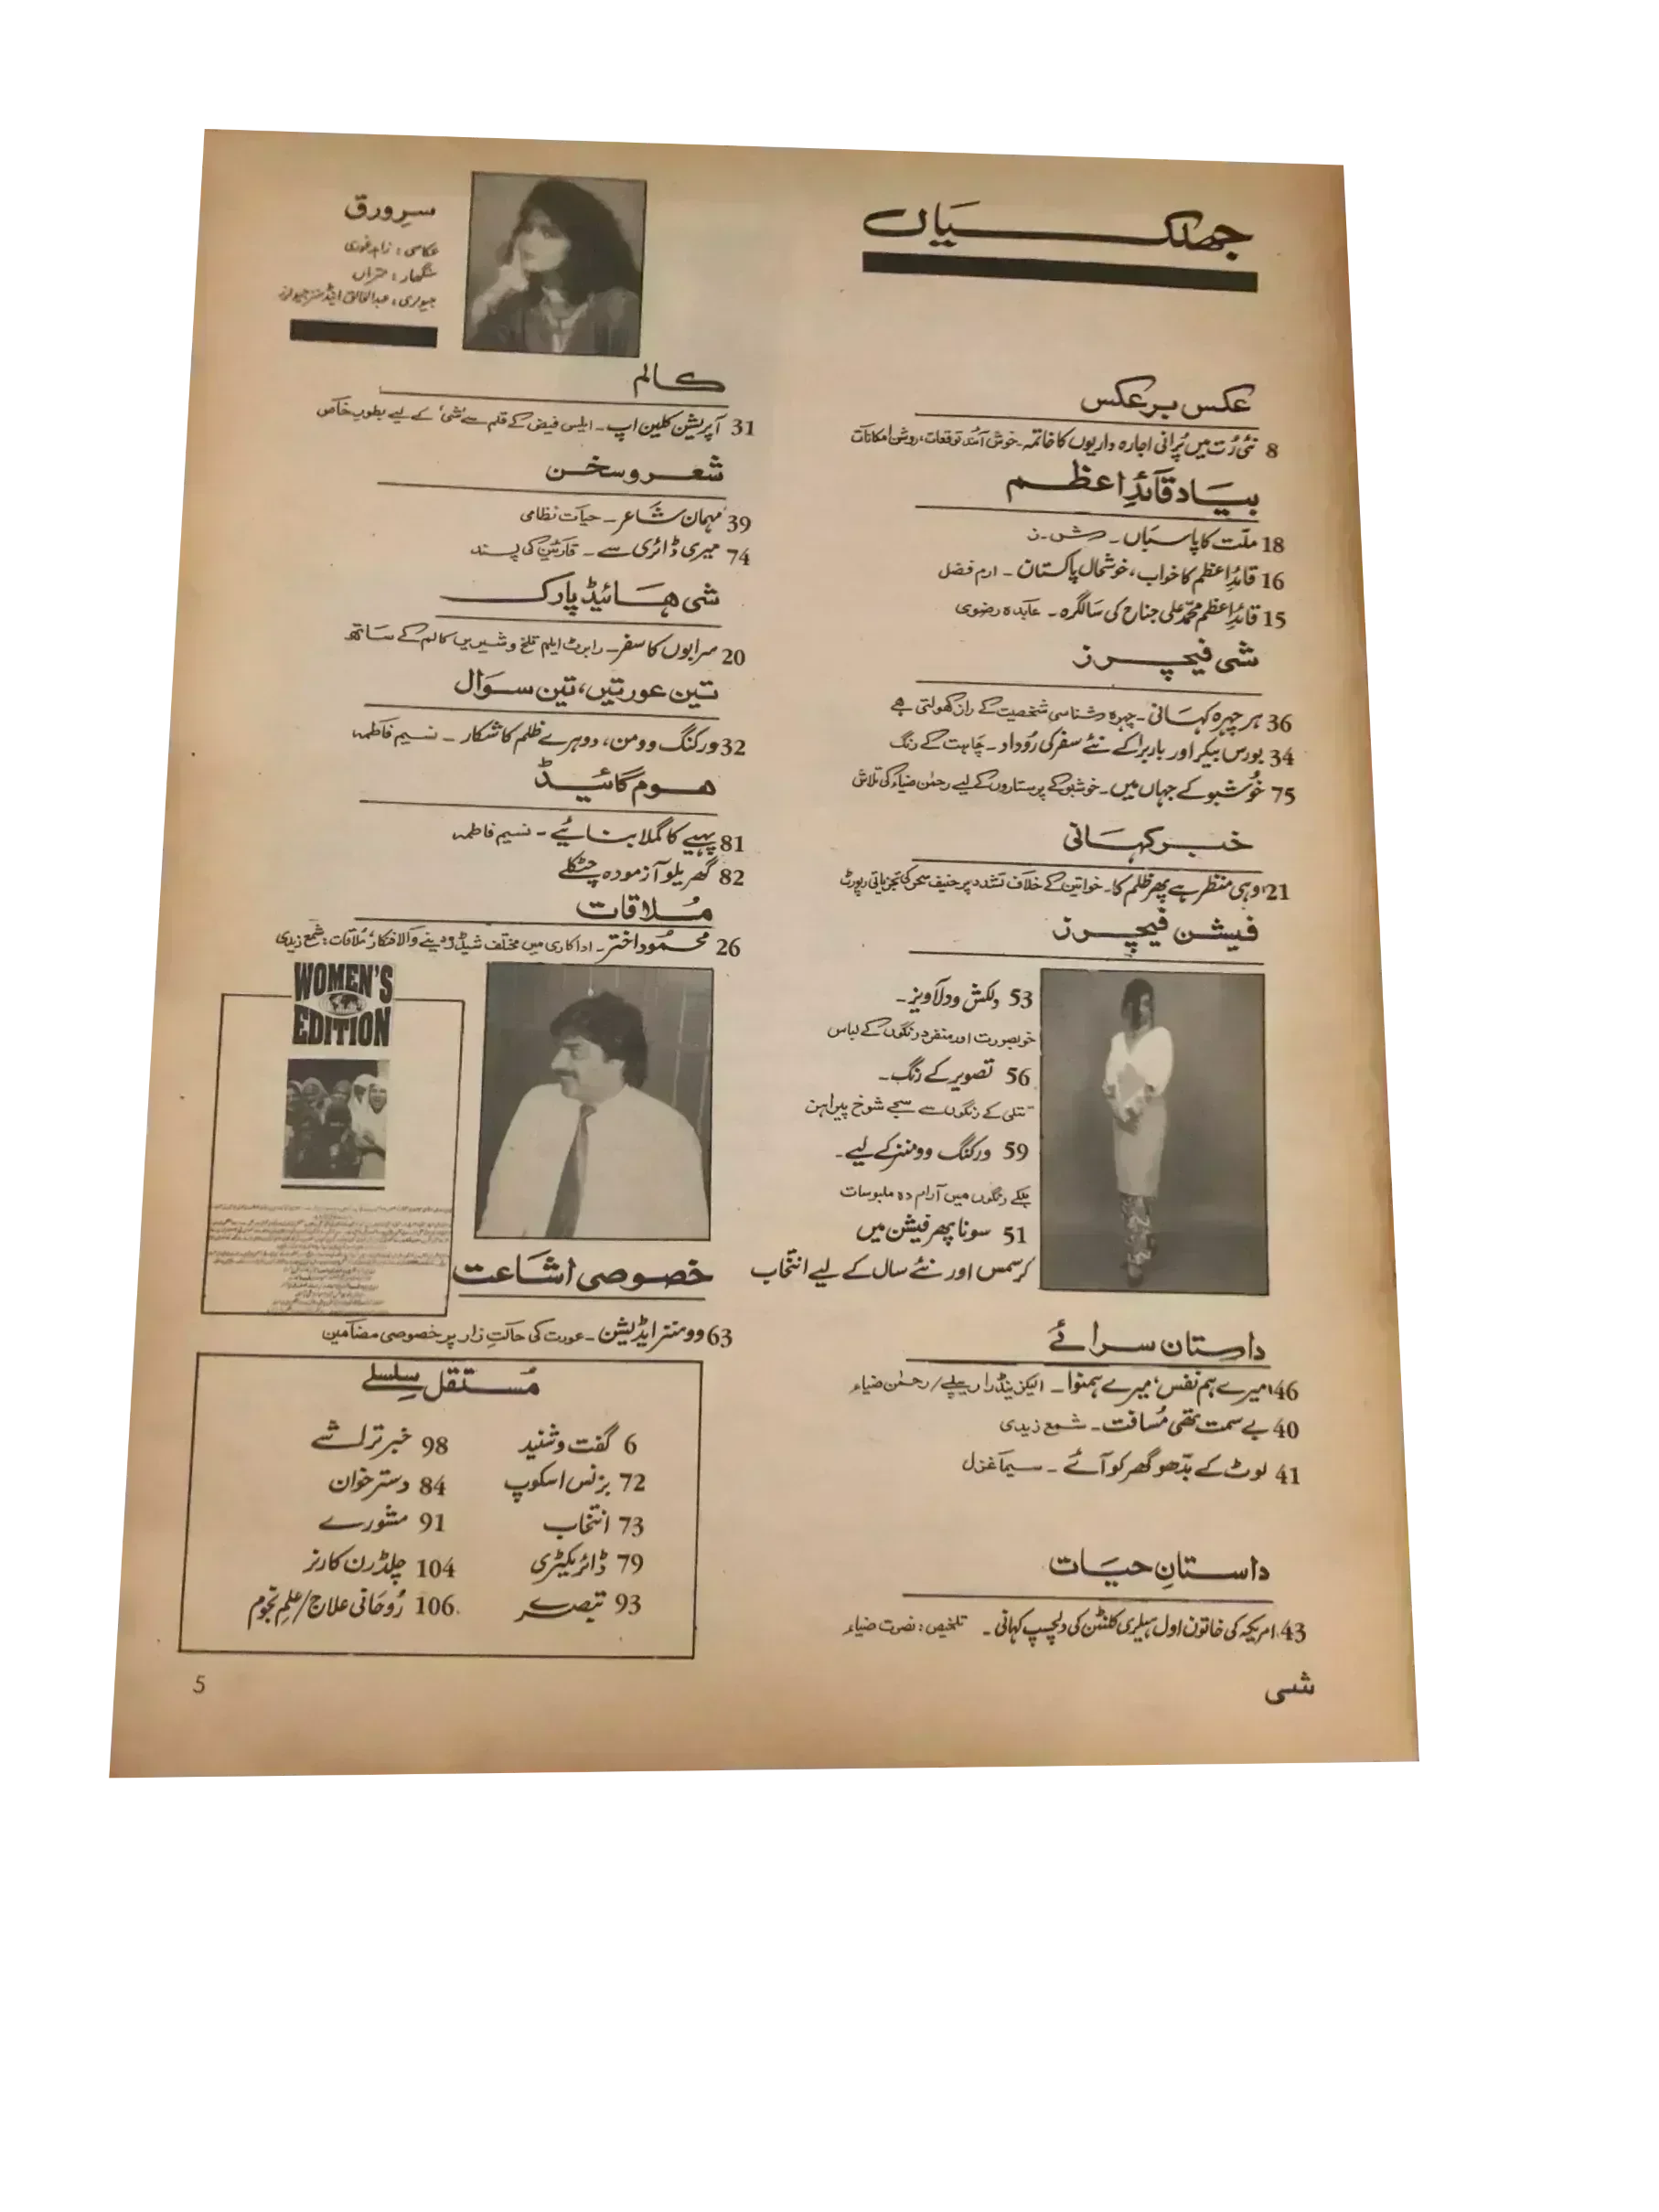 جھلکیاں
عکس برعکس
8 نئی رُت میں پُرانی اجارہ داریوں کا خاتمہ۔ خوش آئند توقعات، روشن امکانات
بیاد قائدِ اعظم
18 ملّت کا پاسباں۔ ش۔ز
16 قائدِ اعظم کا خواب، خوشحال پاکستان۔ ارم فضل
15 قائدِ اعظم محمّد علی جناح کی سالگرہ۔ عابدہ رضوی
شی فیچرز
36 ہر چہرہ کہانی۔ چہرہ شناسی شخصیت کے راز کھولتی ہے
34 بورس بیکر اور باربرا کے نئے سفر کی رُوداد۔ چاہت کے رنگ
75 خُوشبو کے جہاں میں۔ خوشبو کے پرستاروں کے لیے رحمٰن ضیاء کی تلاش
خبر کہانی
21 وہی منظر ہے پھر ظلم کا۔ خواتین کے خلاف تشدد پر حنیف سحر کی تجزیاتی رپورٹ
فیشن فیچرز
53 دلکش و دلآویز۔
خوبصورت اور منفرد رنگوں کے لباس
56 تصویر کے رنگ۔
تتلی کے رنگوں سے سجے شوخ پیراہن
59 ورکنگ وومنز کے لیے۔
ہلکے رنگوں میں آرام دہ ملبوسات
51 سونا پھر فیشن میں
کرسمس اور نئے سال کے لیے انتخاب
داستان سرائے
46 میرے ہم نفس، میرے ہمنوا۔ الیگزینڈرا رپلے/رحمٰن ضیاء
40 بے سمت تھی مُسافت۔ شمع زیدی
41 لوٹ کے بدّھو گھر کو آئے۔ سیما غزل
داستانِ حیات
43 امریکہ کی خاتون اول ہیلری کلنٹن کی دلچسپ کہانی۔ تلخیص: نصرت ضیاء
شی
سرِ ورق
عکاسی: زاہد غوری
سنگھار:
جیولری: عبدالخالق اینڈ سنز جیولرز
کالم
31 آپریشن کلین اپ۔ ایلس فیض کے قلم سے 'شی' کے لیے بطورِ خاص
شعر و سخن
39 مہمان شاعر۔ حیات نظامی
74 میری ڈائری سے۔ قارئین کی پسند
شی ہائیڈ پارک
20 سرابوں کا سفر۔ رابرٹ ایلم تلخ و شیریں کالم کے ساتھ
تین عورتیں، تین سوال
32 ورکنگ وومن، دوہرے ظلم کا شکار۔ نسیم فاطمہ
ہوم گائیڈ
81 پہیے کا گملا بنائیے۔ نسیم فاطمہ
82 گھریلو آزمودہ چٹکلے
مُلاقات
26 محمُود اختر۔ اداکاری میں مختلف شیڈز دینے والا فنکار، مُلاقات: شمع زیدی
WOMEN'S
EDITION
خصوصی اشاعت
63 وومنز ایڈیشن۔ عورت کی حالتِ زار پر خصوصی مضامین
مُستقل سِلسلے
6 گفت و شنید
72 بزنس اسکوپ
73 انتخاب
79 ڈائریکٹری
93 تبصرے
98 خبر تراشے
84 دسترخوان
91 مشورے
104 چلڈرن کارنر
106 رُوحانی علاج/علمِ نجوم
5